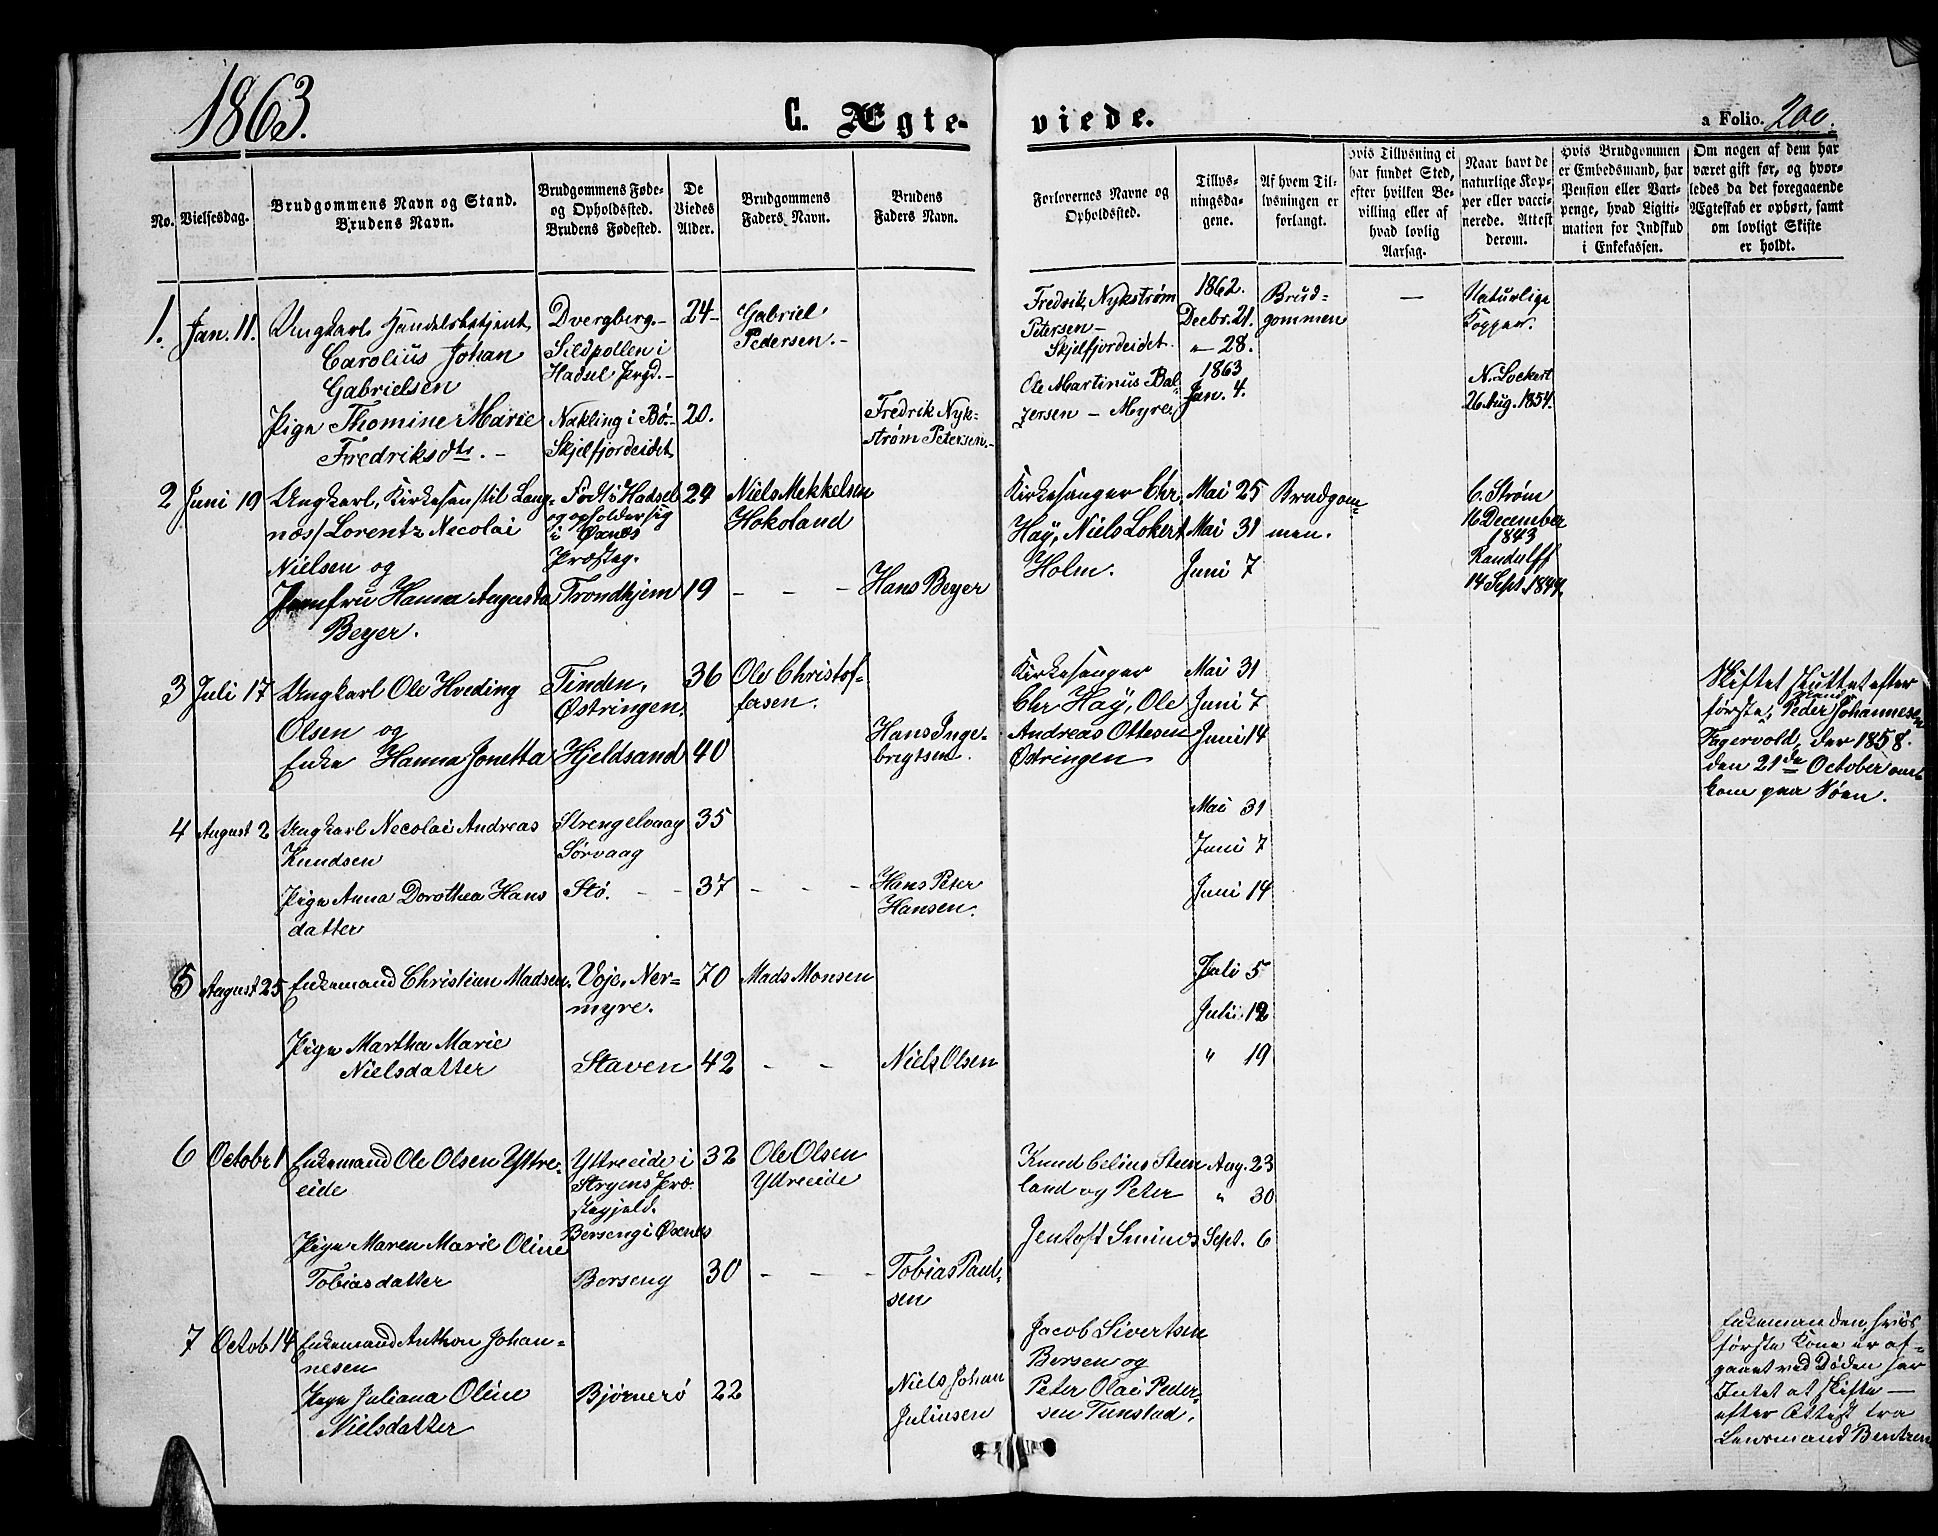 1863.
C. Ægte-
viede.
a Folio. 200.
No.
Vielsesdag.
Brudgommens Navn og Stand.
Brudens Navn.
Brudgommens Føde-
og Opholdssted.
Brudens Fødested.
De
Viedes
Alder.
Brudgommens
Faders Navn.
Brudens
Faders Navn.
Forlovernes Navne og
Opholdssted.
Tillys-
ningsda-
gene.
Af hvem Til-
lysningen er
forlangt.
Hvis Tillysning ei
har fundet Sted,
efter hvilken Be-
villing eller af
hvad lovlig
Aarsag.
Naar havt de
naturlige Kop-
per eller vacci-
nerede. Attest
derom.
Hvis Brudgommen
er Embedsmand, har
Pension eller Vart-
penge, hvad Ligiti-
mation for Indskud
i Enkekassen.
Om nogen af dem har
været gift før, og hvor-
ledes da det foregaaende
Ægteskab er ophørt, samt
om lovligt Skifte
er holdt.
1.
Jan. 11.
Ungkarl, Handelsbetjent
Carolius Johan
Gabrielsen
Pige Thomine Marie
Fredriksdtr. -
Dvergberg. -
Sildpollen i
Hadsel Prgd. -
Nykling i Bø. -
Skjelfjordeidet
24 -
20.
Gabriel
Pedersen. -
Fredrik Nyk-
strøm Petersen. -
Fredrik Nykstrøm
Petersen -
Skjelfjordeidet.
Ole Martinus Bal-
tersen - Myre
1862.
Decbr. 21.
" 28.
1863
Jan. 4.
Brud-
gommen
—
Naturlige
Kopper.
N. Lockert
26 Aug. 1854.
2
Juni 19
Ungkarl, Kirkesan/til Lang-
næs/ Lorentz Necolai
Nielsen og
Jomfru Hanna Augusta
Beyer.
Født i Hadsel
og opholder sig
i Øxnes
Præsteg.
Trondhjem
29
19
Niels Mekkelsen
Hokoland
- - -
Hans Beyer
Kirkesanger Chr.
Høy, Niels Lokert
Holm.
Mai 25
Mai 31
Juni 7
Brudgom-
men.
C. Strøm
16 December
1843
Randulff
14 Sept. 1849.
3
Juli 17
Ungkarl Ole Hveding
Olsen og
Enke Hanna Jonetta
Tinden,
Østringen.
Hjeldsand
36
40
Ole Christof-
fersen.
Hans Inge-
brigtsen.
Kirkesanger
Chr Høy, Ole
Andreas Ottesen
Østringen
Mai 31
Juni 7
Juni 14
Skiftet sluttet efter
første Mand, Peder Johannesen
Fagervold, der 1858.
den 21de October om-
kom paa Søen.
4
August 2
Ungkarl Necolai Andreas
Knudsen
Pige Anna Dorothea Hans
datter
Strengelvaag
Sørvaag
Stø. - -
35
37
- - -
Hans Peter
Hansen.
Mai 31
Juni 7
Juni 14
5
August 25
Enkemand Christian Madsen.
Pige Martha Marie
Nielsdatter
Voje, Ner-
myre.
Staven
70
42
Mads Monsen
- -
Niels Olsen
Juli 5
Juli 12
" 19
6
Octobr 1
Enkemand Ole Olsen Yttre-
eide
Pige Maren Marie Oline
Tobiasdatter
Yttreeide i
Stryens Præ-
stegjeld.
Berseng i Øxnes
Berseng
32
30
Ole Olsen
Yttreeide
- - -
Tobias Paul-
sen
Knud Celius Steen
land og Peter
Jentoft Smines
Aug. 23
" 30
Sept. 6
7
Octob 14
Enkemand Anthon Johan-
nesen
Pige Juliana Oline
Nielsdatter
Bjørnerø
22
Niels Johan
Juliusen
Jacob Sivertsen
Bersen og
Peter Olai Peder-
sen Tunstad.
Enkemanden hvis
første Kone er af-
gaaet ved Døden har
Intet at skifte —
efter Attest fra
Lensmand